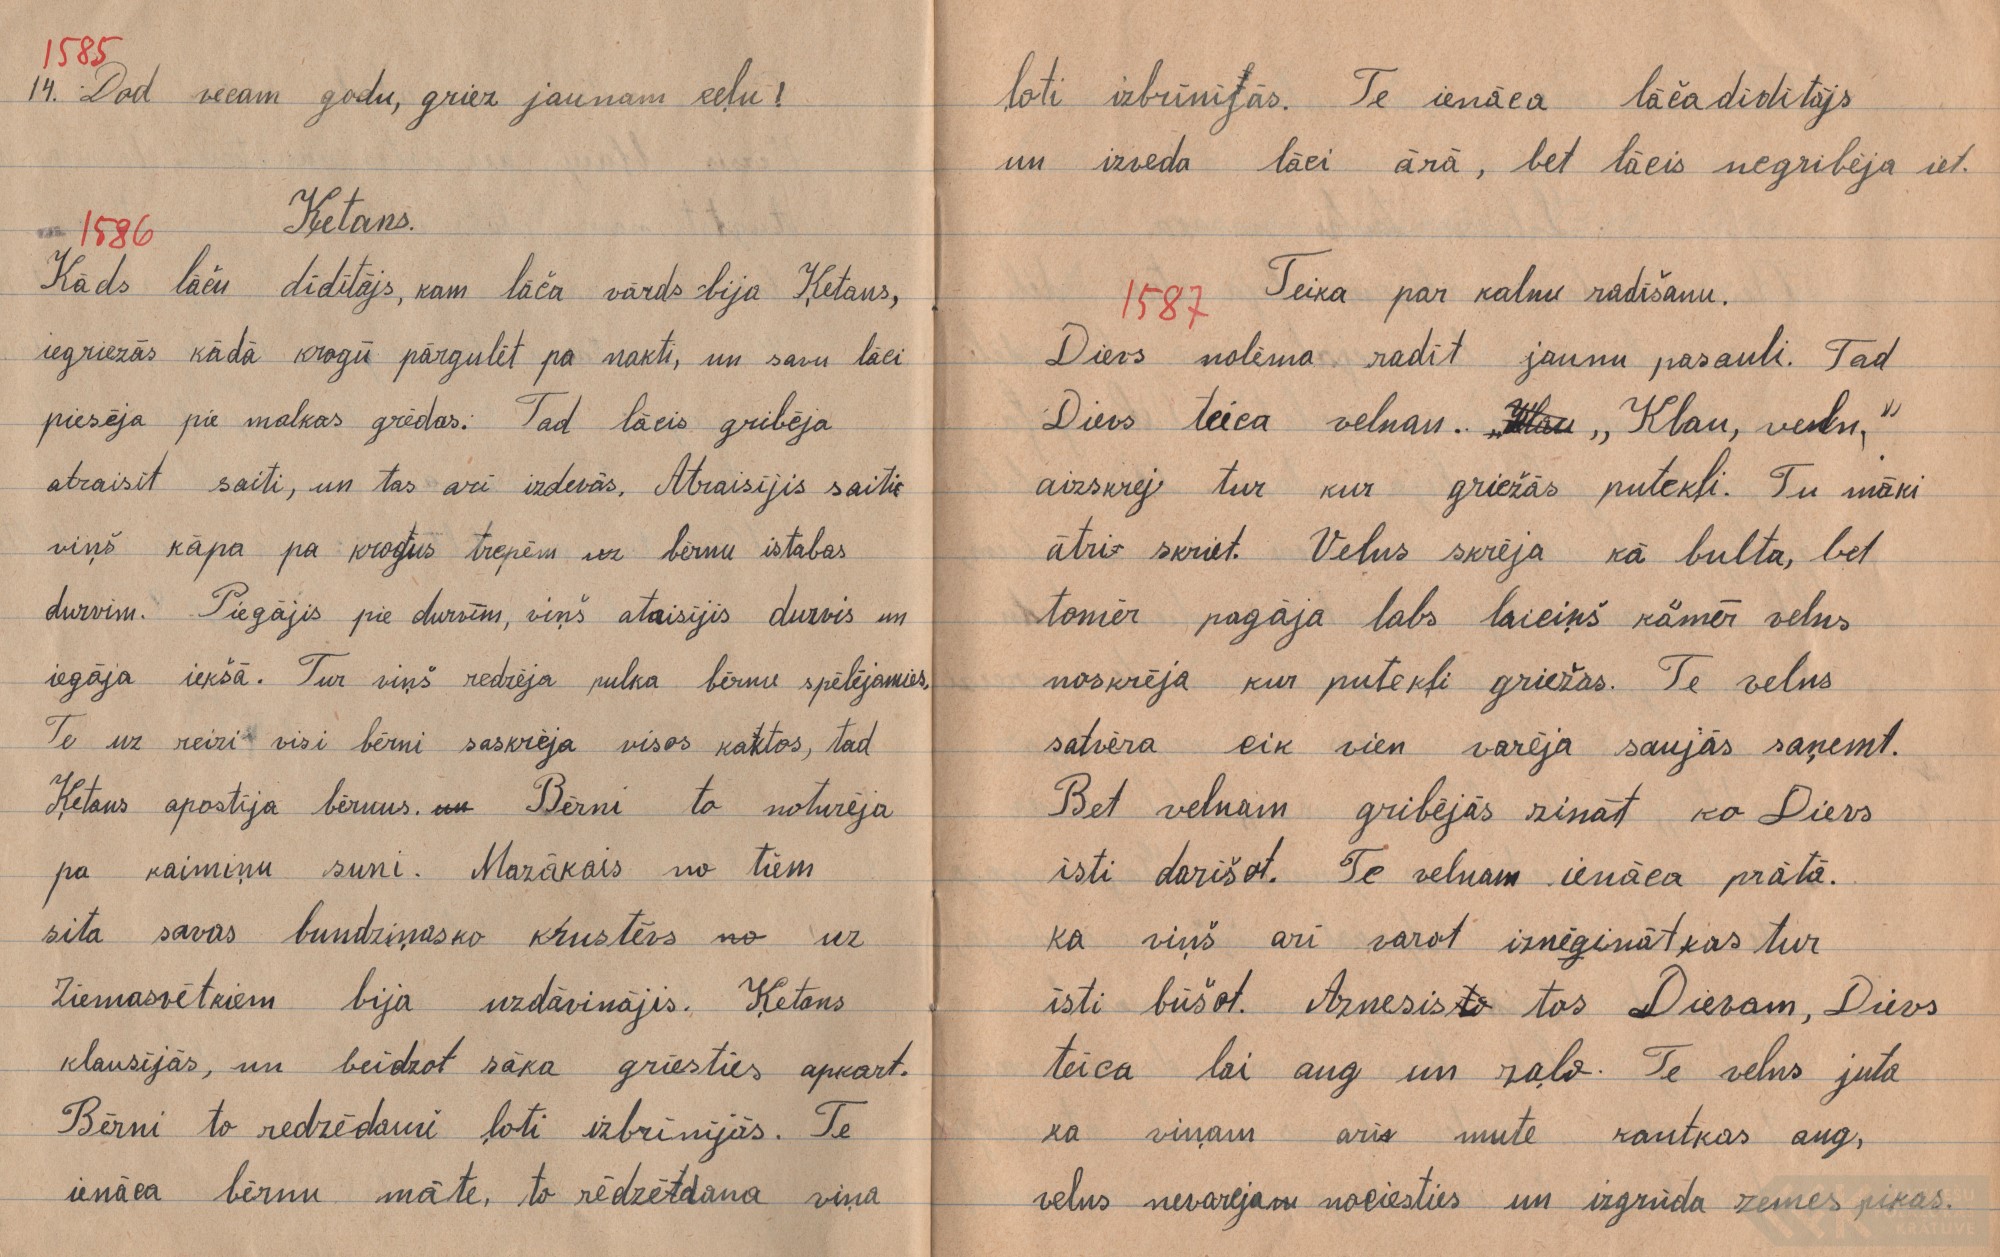 1585
14. Dod vecam godu, griez jaunam ceļu!
Ķetans.
1586
Kāds lāču dīdītājs, kam lāča vārds bija Ķetans,
iegriezās kādā krogū pārgulēt pa nakti, un savu lāci
piesēja pie malkas grēdas. Tad lācis gribēja
atraisīt saiti, un tas arī izdevās. Atraisījis saiti
viņš kāpa pa krogus trepēm uz bērnu istabas
durvim. Piegājis pie durvīm, viņš ataisījis durvis un
iegāja iekšā. Tur viņš redzēja pulka bērnu spēlējamies.
Te uz reizi visi bērni saskrēja visos kaktos, tad
Ķetans apostīja bērnus. un Bērni to noturēja
pa kaimiņu suni. Mazākais no tiem
sita savas bundziņas ko krustēvs no uz
Ziemasvētkiem bija uzdāvinājis. Ķetans
klausījās, un beidzot sāka griesties apkart.
Bērni to redzēdami ļoti izbrīnījās. Te
ienāca bērnu māte, to rēdzēdana viņa
ļoti izbrīnījās. Te ienāca lāča dīdītājs
un izveda lāci ārā, bet lācis negribēja iet.
Teika par kalnu radīšanu.
1587
Dievs nolēma radīt jaunu pasauli. Tad
Dievs teica velnam. „Klau „Klau, veln,"
aizskrej tur kur griežās putekļi. Tu māki
ātri skriet. Velns skrēja kā bulta, bet
tomēr pagāja labs laiciņš kāmēr velns
noskrēja kur putekļi griežas. Te velns
satvēra cik vien varēja saujās saņemt.
Bet velnam gribējās zināt ko Dievs
īsti darīšot. Te velnam ienāca prātā.
ka viņš arī varot izmēģināt kas tur
īsti būšot. Aznesis to tos Dievam, Dievs
teica lai aug un zaļo. Te velns juta
ka viņam arī mute rautkas aug,
velns nevarēja nociesties un izgrūda zemes pikas.
KRĀTUVE